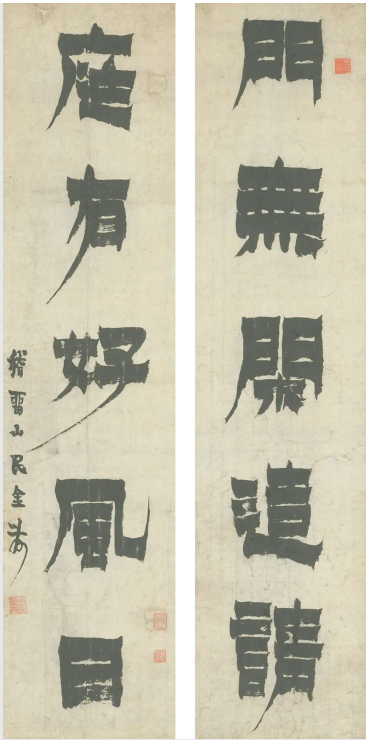 門無閑造請
庭有好風日
稽畱山民金農